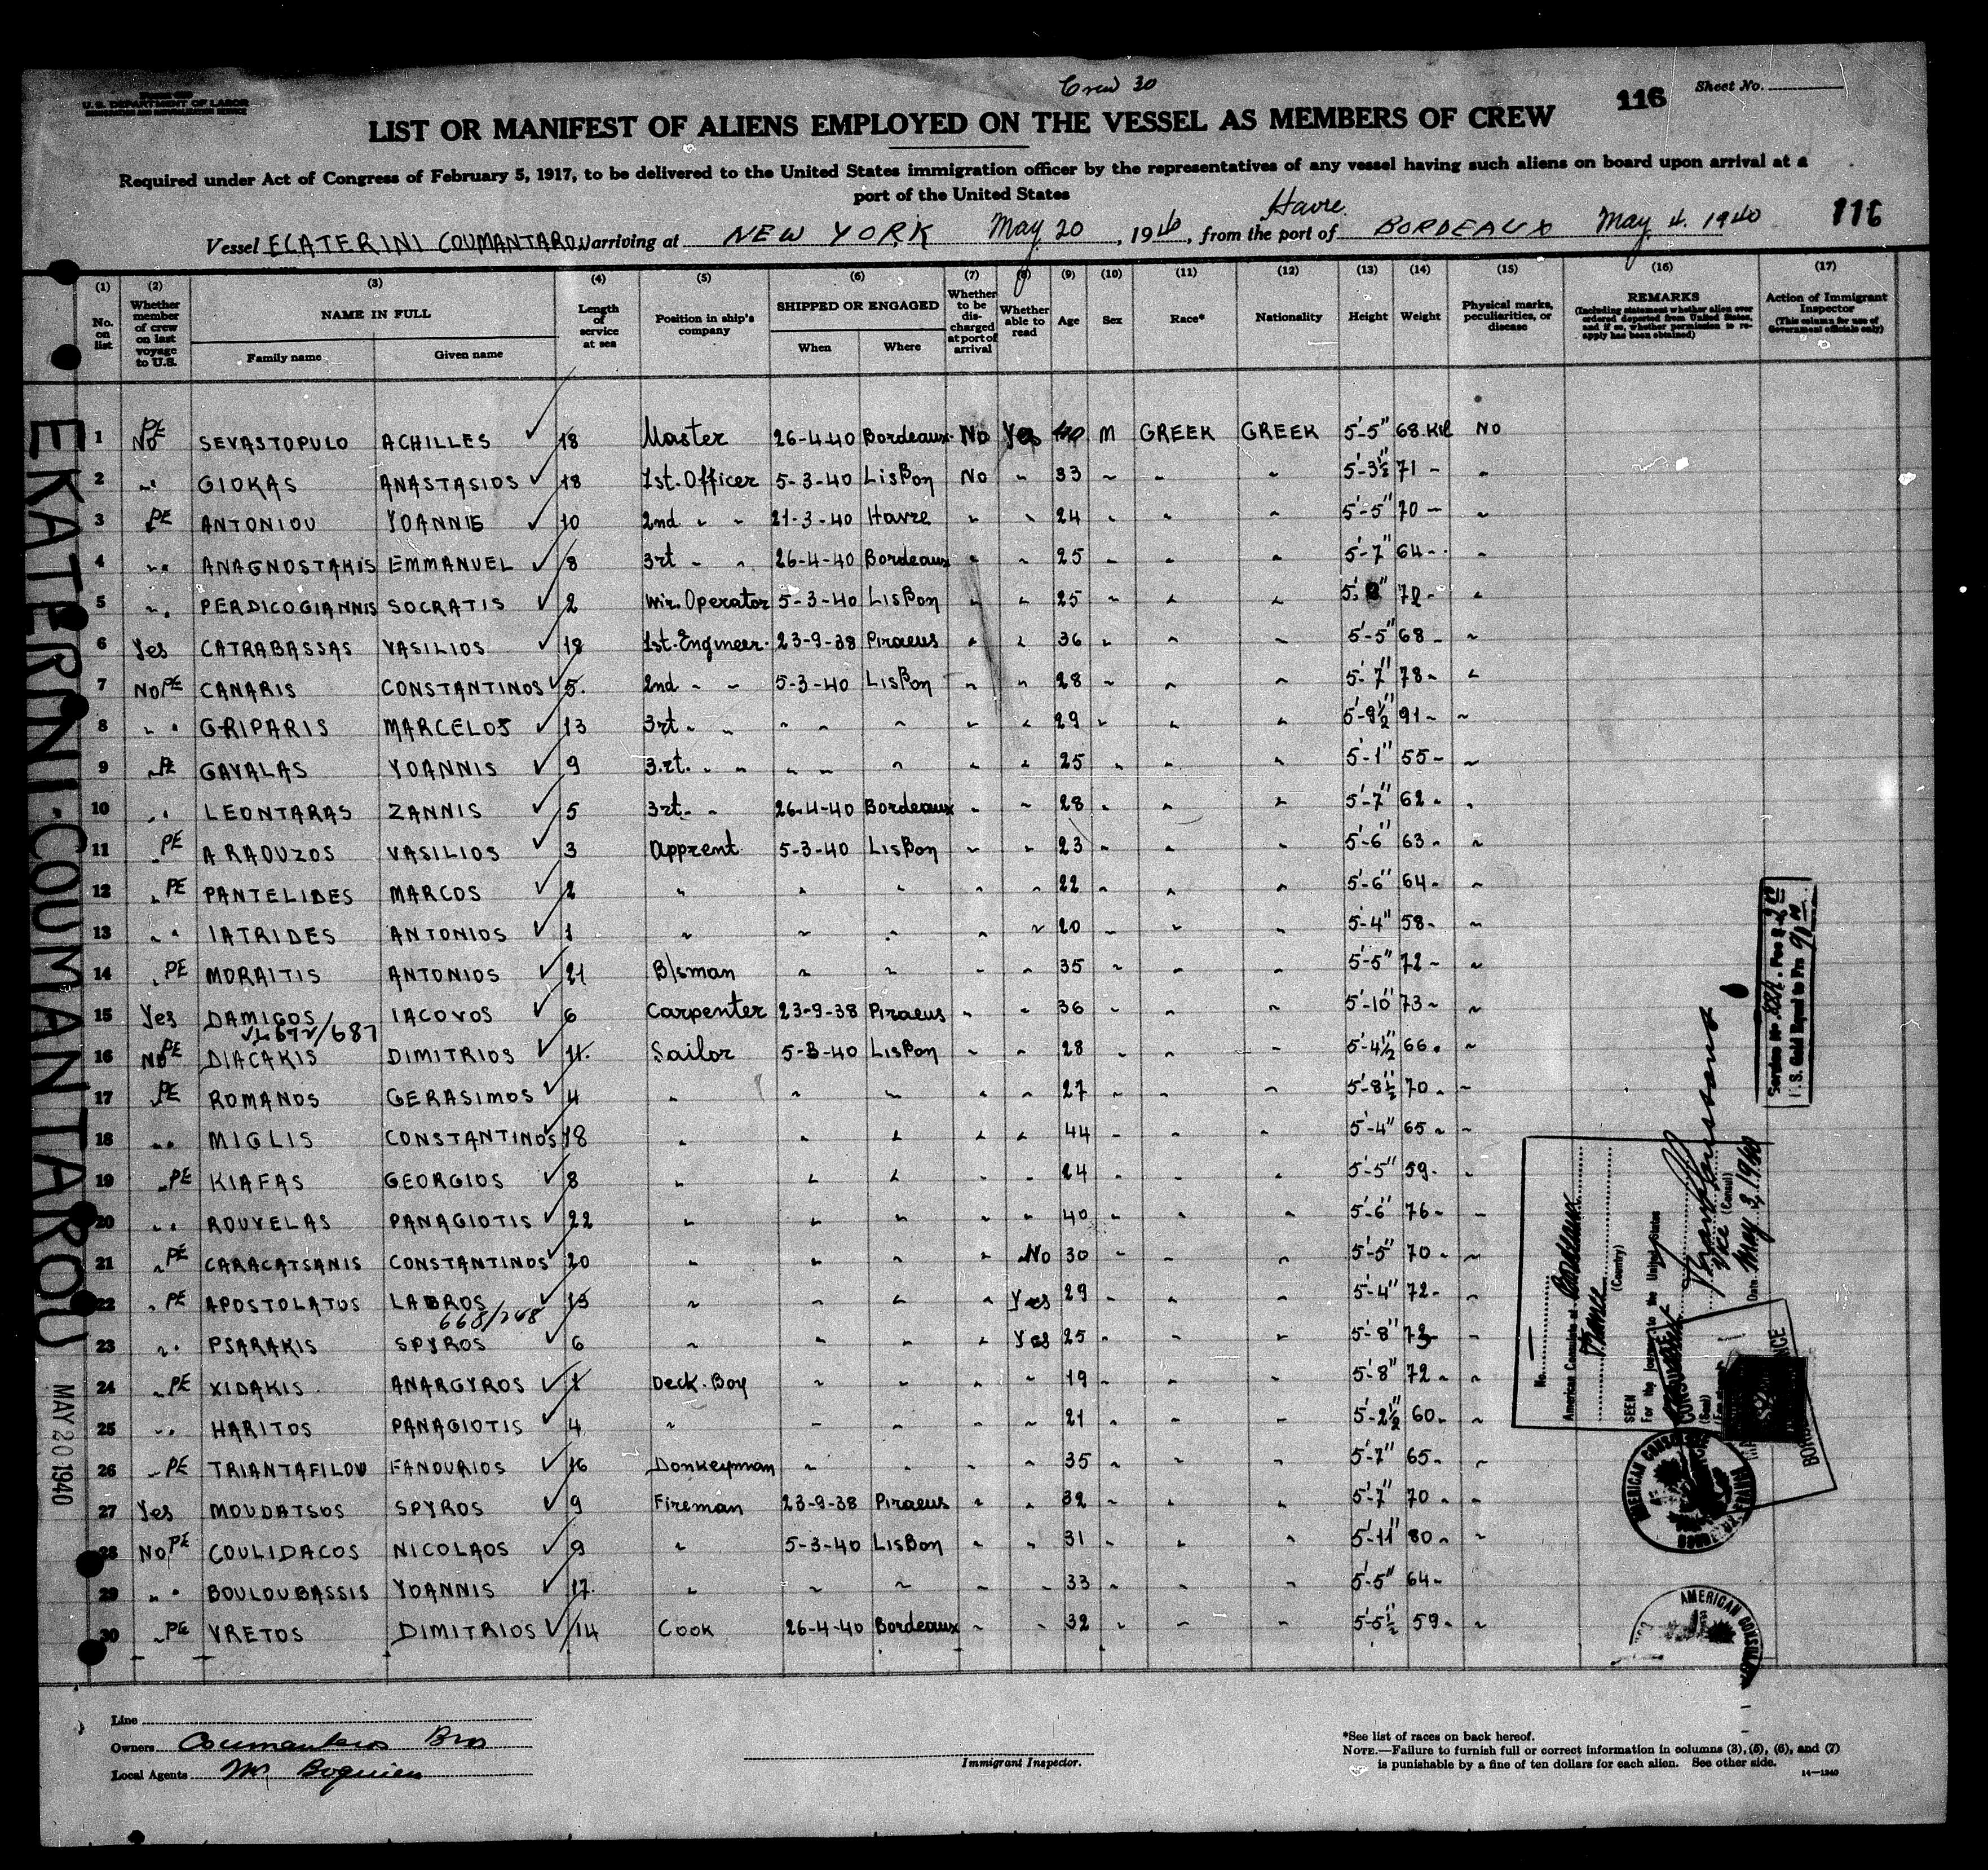 Crew 30
U.S. DEPARTMENT OF LABOR
116
Sheet No.
LIST OR MANIFEST OF ALIENS EMPLOYED ON THE VESSEL AS MEMBERS OF CREW
Required under Act of Congress of February 5, 1917, to be delivered to the United States immigration officer by the representatives of any vessel having such aliens on board upon arrival at a
port of the United States
Havre
Vessel ECATERINI COUMANTAROU arriving at NEW YORK May 20, 1940, from the port of BORDEAUX May 4. 1940 116
(1) (2) (3) (4) (5) (6) (7) (8) (9) (10) (11) (12) (13) (14) (15) (16) (17)
No. on list
Whether member of crew on last voyage to U.S.
NAME IN FULL
Family name Given name
Length of service at sea
Position in ship's company
SHIPPED OR ENGAGED
When Where
Whether to be discharged at port of arrival
Whether able to read
Age Sex Race* Nationality Height Weight
Physical marks, peculiarities, or disease
REMARKS
(Including statement whether alien ever ordered deported from United States, and if so, whether permission to reapply has been obtained)
Action of Immigrant Inspector
(This column for use of Government officials only)
1 No PE SEVASTOPULO ACHILLES ✓ 18 Master 26-4-40 Bordeaux No Yes 40 M GREEK GREEK 5'-5" 68 Kil No
2 " GIOKAS ANASTASIOS ✓ 18 1st. Officer 5-3-40 Lisbon No " 33 " " " 5'-3½" 71 " "
3 PE ANTONIOU YOANNIS ✓ 10 2nd " " 21-3-40 Havre " " 24 " " " 5'-5" 70 " "
4 " ANAGNOSTAKIS EMMANUEL ✓ 8 3rt " " 26-4-40 Bordeaux " " 25 " " " 5'-7" 64 " "
5 " PERDICOGIANNIS SOCRATIS ✓ 2 Wir. Operator 5-3-40 Lisbon " " 25 " " " 5'-8" 72 " "
6 Yes CATRABASSAS VASILIOS ✓ 18 1st. Engineer 23-9-38 Piraeus " " 36 " " " 5'-5" 68 " "
7 No PE CANARIS CONSTANTINOS ✓ 5 2nd " " 5-3-40 Lisbon " " 28 " " " 5'-7" 78 " "
8 " " GRIPARIS MARCELOS ✓ 13 3rt " " " " " " " 29 " " " 5'-9½" 91 " "
9 " PE GAVALAS YOANNIS ✓ 9 3.rt. " " " " " " " 25 " " " 5'-1" 55 " "
10 " " LEONTARAS ZANNIS ✓ 5 3rt. " 26-4-40 Bordeaux " " 28 " " " 5'-7" 62 " "
11 " PE ARAOUZOS VASILIOS ✓ 3 Apprent 5-3-40 Lisbon " " 23 " " " 5'-6" 63 " "
12 " PE PANTELIDES MARCOS ✓ 2 " " " " " 22 " " " 5'-6" 64 " "
13 " " IATRIDES ANTONIOS ✓ 1 " " " " " 20 " " " 5'-4" 58 " "
14 " PE MORAITIS ANTONIOS ✓ 21 B/sman " " " " 35 " " " 5'-5" 72 " "
15 Yes DAMIGOS IACOVOS ✓ 6 Carpenter 23-9-38 Piraeus " " 36 " " " 5'-10" 73 " "
16 No PE DIACAKIS DIMITRIOS ✓ 11. Sailor 5-3-40 Lisbon " " 28 " " " 5'-4½" 66 " "
17 " PE ROMANOS GERASIMOS ✓ 4 " " " " " 27 " " " 5'-8½" 70 " "
18 " " MIGLIS CONSTANTINOS ✓ 18 " " " " " 44 " " " 5'-4" 65 " "
19 " PE KIAFAS GEORGIOS ✓ 8 " " " " " 24 " " " 5'-5" 59 " "
20 " " ROUVELAS PANAGIOTIS ✓ 22 " " " " " 40 " " " 5'-6" 76 " "
21 " PE CARACATSANIS CONSTANTINOS ✓ 20 " " " " No 30 " " " 5'-5" 70 " "
22 " PE APOSTOLATOS LABROS ✓ 13 " " " " Yes 29 " " " 5'-4" 72 " "
668/248
23 " " PSARAKIS SPYROS ✓ 6 " " " " Yes 25 " " " 5'-8" 73 " "
24 " PE XIDAKIS ANARGYROS ✓ 1 Deck. Boy " " " " 19 " " " 5'-8" 72 " "
25 " " HARITOS PANAGIOTIS ✓ 4 " " " " " 21 " " " 5'-2½" 60 " "
26 " PE TRIANTAFILOU FANOURIOS ✓ 16 Donkeyman " " " " 35 " " " 5'-7" 65 " "
27 Yes MOUDATSOS SPYROS ✓ 9 Fireman 23-9-38 Piraeus " " 32 " " " 5'-7" 70 " "
28 No PE COULIDACOS NICOLAOS ✓ 9 " 5-3-40 Lisbon " " 31 " " " 5'-11" 80 " "
29 " " BOULOUBASSIS YOANNIS ✓ 17. " " " " " 33 " " " 5'-5" 64 "
30 " PE VRETOS DIMITRIOS ✓ 14 Cook 26-4-40 Bordeaux " " 32 " " " 5'-5½" 59 " "
EKATERINI·COUMANTAROU
MAY 20 1940
No.
American Consulate at Bordeaux
France
(Country)
SEEN
For the journey to the United States
Vice (Consul)
Date May 3, 1940
AMERICAN CONSULATE
Line
Owners Coumantaros Bros
Local Agents
Immigrant Inspector.
*See list of races on back hereof.
NOTE.—Failure to furnish full or correct information in columns (3), (5), (6), and (7)
is punishable by a fine of ten dollars for each alien. See other side.
14—1240